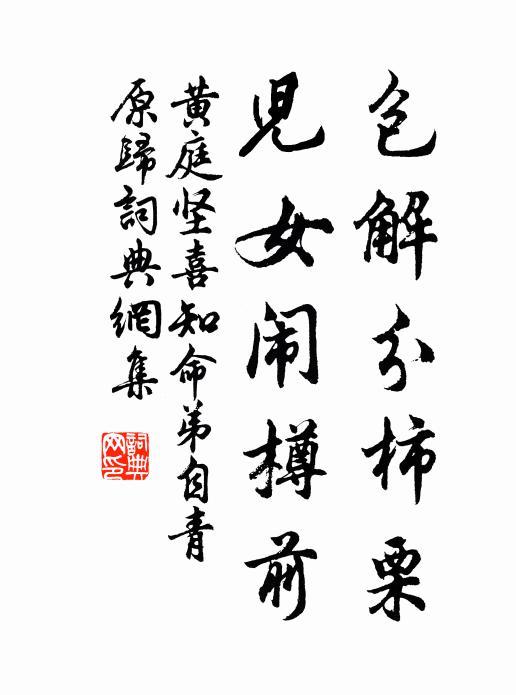 包解分柿栗
兒女闹樽前
黄庭坚喜知命弟自青
原歸詞典網集
詞典
网印